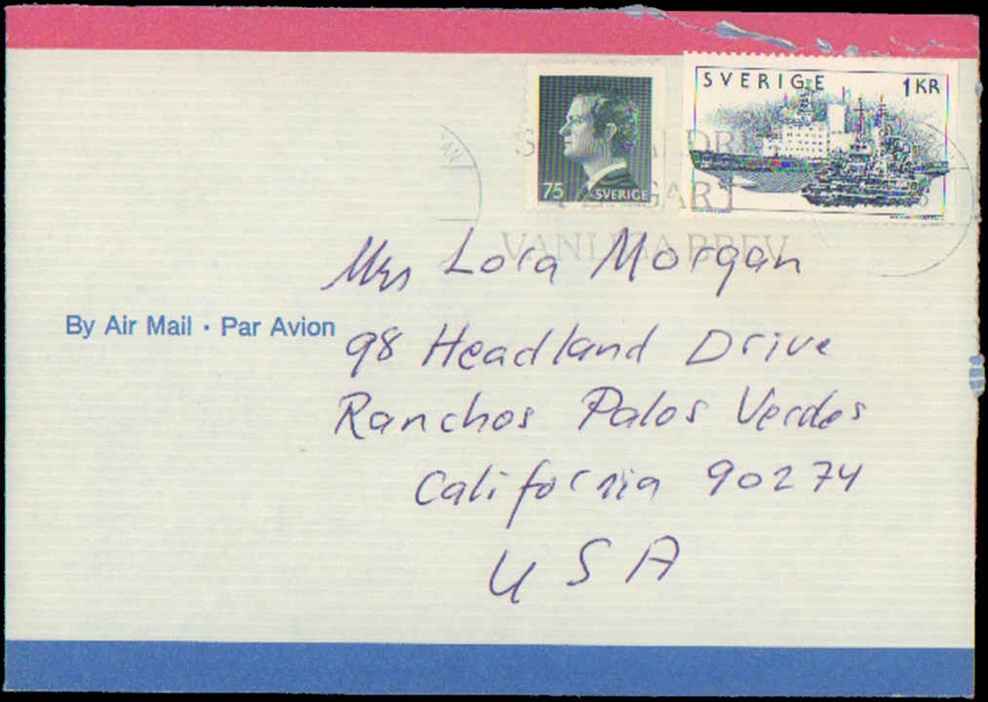 SVERIGE 1 KR
75 SVERIGE
VANLIGA BREV
Mrs Lora Morgan
By Air Mail · Par Avion
98 Headland Drive
Ranchos Palos Verdes
California 90274
USA